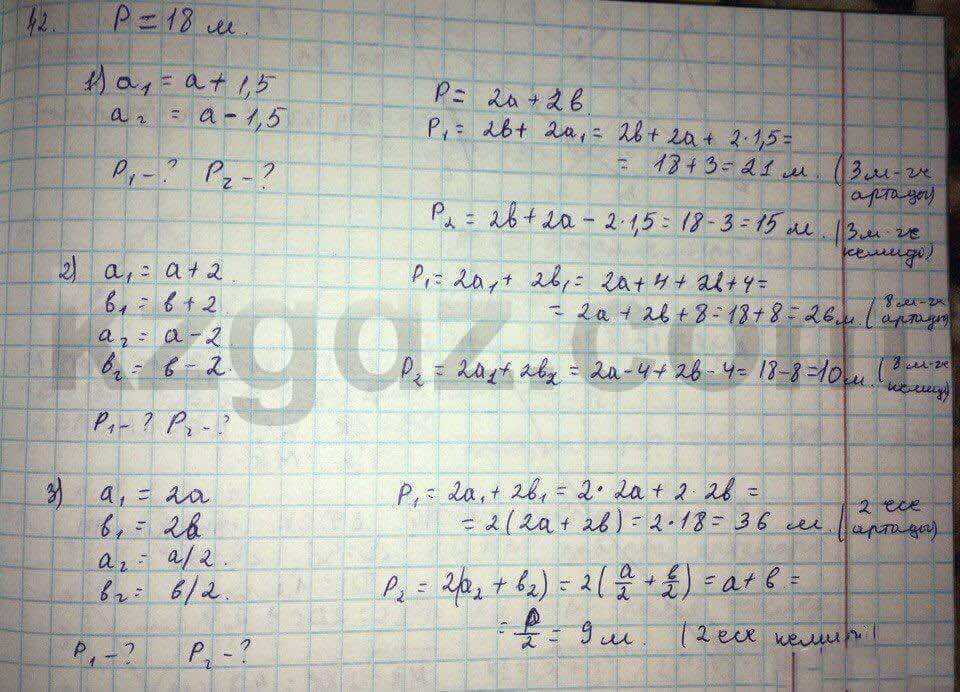 42. P = 18 м.
1) a₁ = a + 1,5
a₂ = a - 1,5
P₁ - ? P₂ - ?
P = 2a + 2в
P₁ = 2в + 2a₁ = 2в + 2a + 2·1,5 =
= 18 + 3 = 21 м. (3 м-ге артады)
P₂ = 2в + 2a - 2·1,5 = 18 - 3 = 15 м. (3 м-ге кемиді)
2) a₁ = a + 2.
в₁ = в + 2.
a₂ = a - 2
в₂ = в - 2.
P₁ - ? P₂ - ?
P₁ = 2a₁ + 2в₁ = 2a + 4 + 2в + 4 =
= 2a + 2в + 8 = 18 + 8 = 26 м. (8 м-ге артады)
P₂ = 2a₂ + 2в₂ = 2a - 4 + 2в - 4 = 18 - 8 = 10 м. (8 м-ге кемиді)
3) a₁ = 2a
в₁ = 2в
a₂ = a/2.
в₂ = в/2.
P₁ - ? P₂ - ?
P₁ = 2a₁ + 2в₁ = 2·2a + 2·2в =
= 2(2a + 2в) = 2·18 = 36 м. (2 есе артады)
P₂ = 2(a₂ + в₂) = 2(a/2 + в/2) = a + в =
= P/2 = 9 м. (2 есе
kzgdz.com